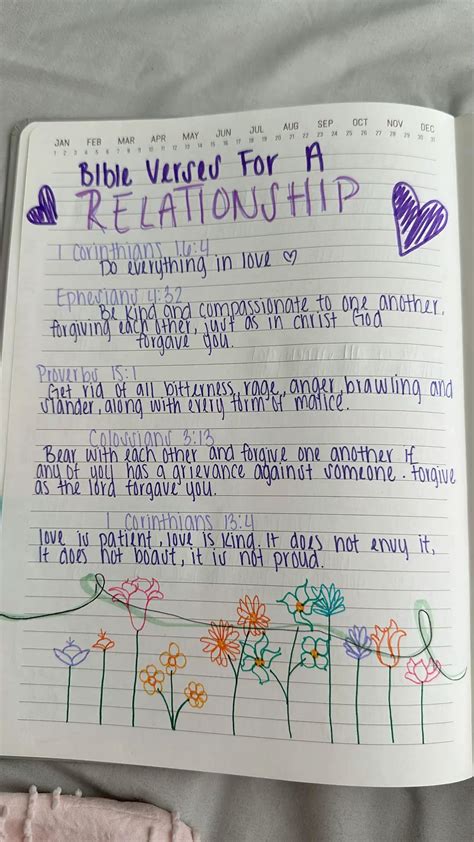 JAN FEB MAR APR MAY JUN JUL AUG SEP OCT NOV DEC
Bible Verses For A
RELATIONSHIP
1 Corinthians 16:4
Do everything in love ♡
Ephesians 4:32
Be kind and compassionate to one another,
forgiving each other, just as in christ God
forgave you.
Proverbs 15:1
Get rid of all bitterness, rage, anger, brawling and
slander, along with every form of malice.
Colossians 3:13
Bear with each other and forgive one another if
any of you has a grievance against someone. Forgive
as the lord forgave you.
1 Corinthians 13:4
love is patient, love is kind. It does not envy it,
It does not boast, it is not proud.